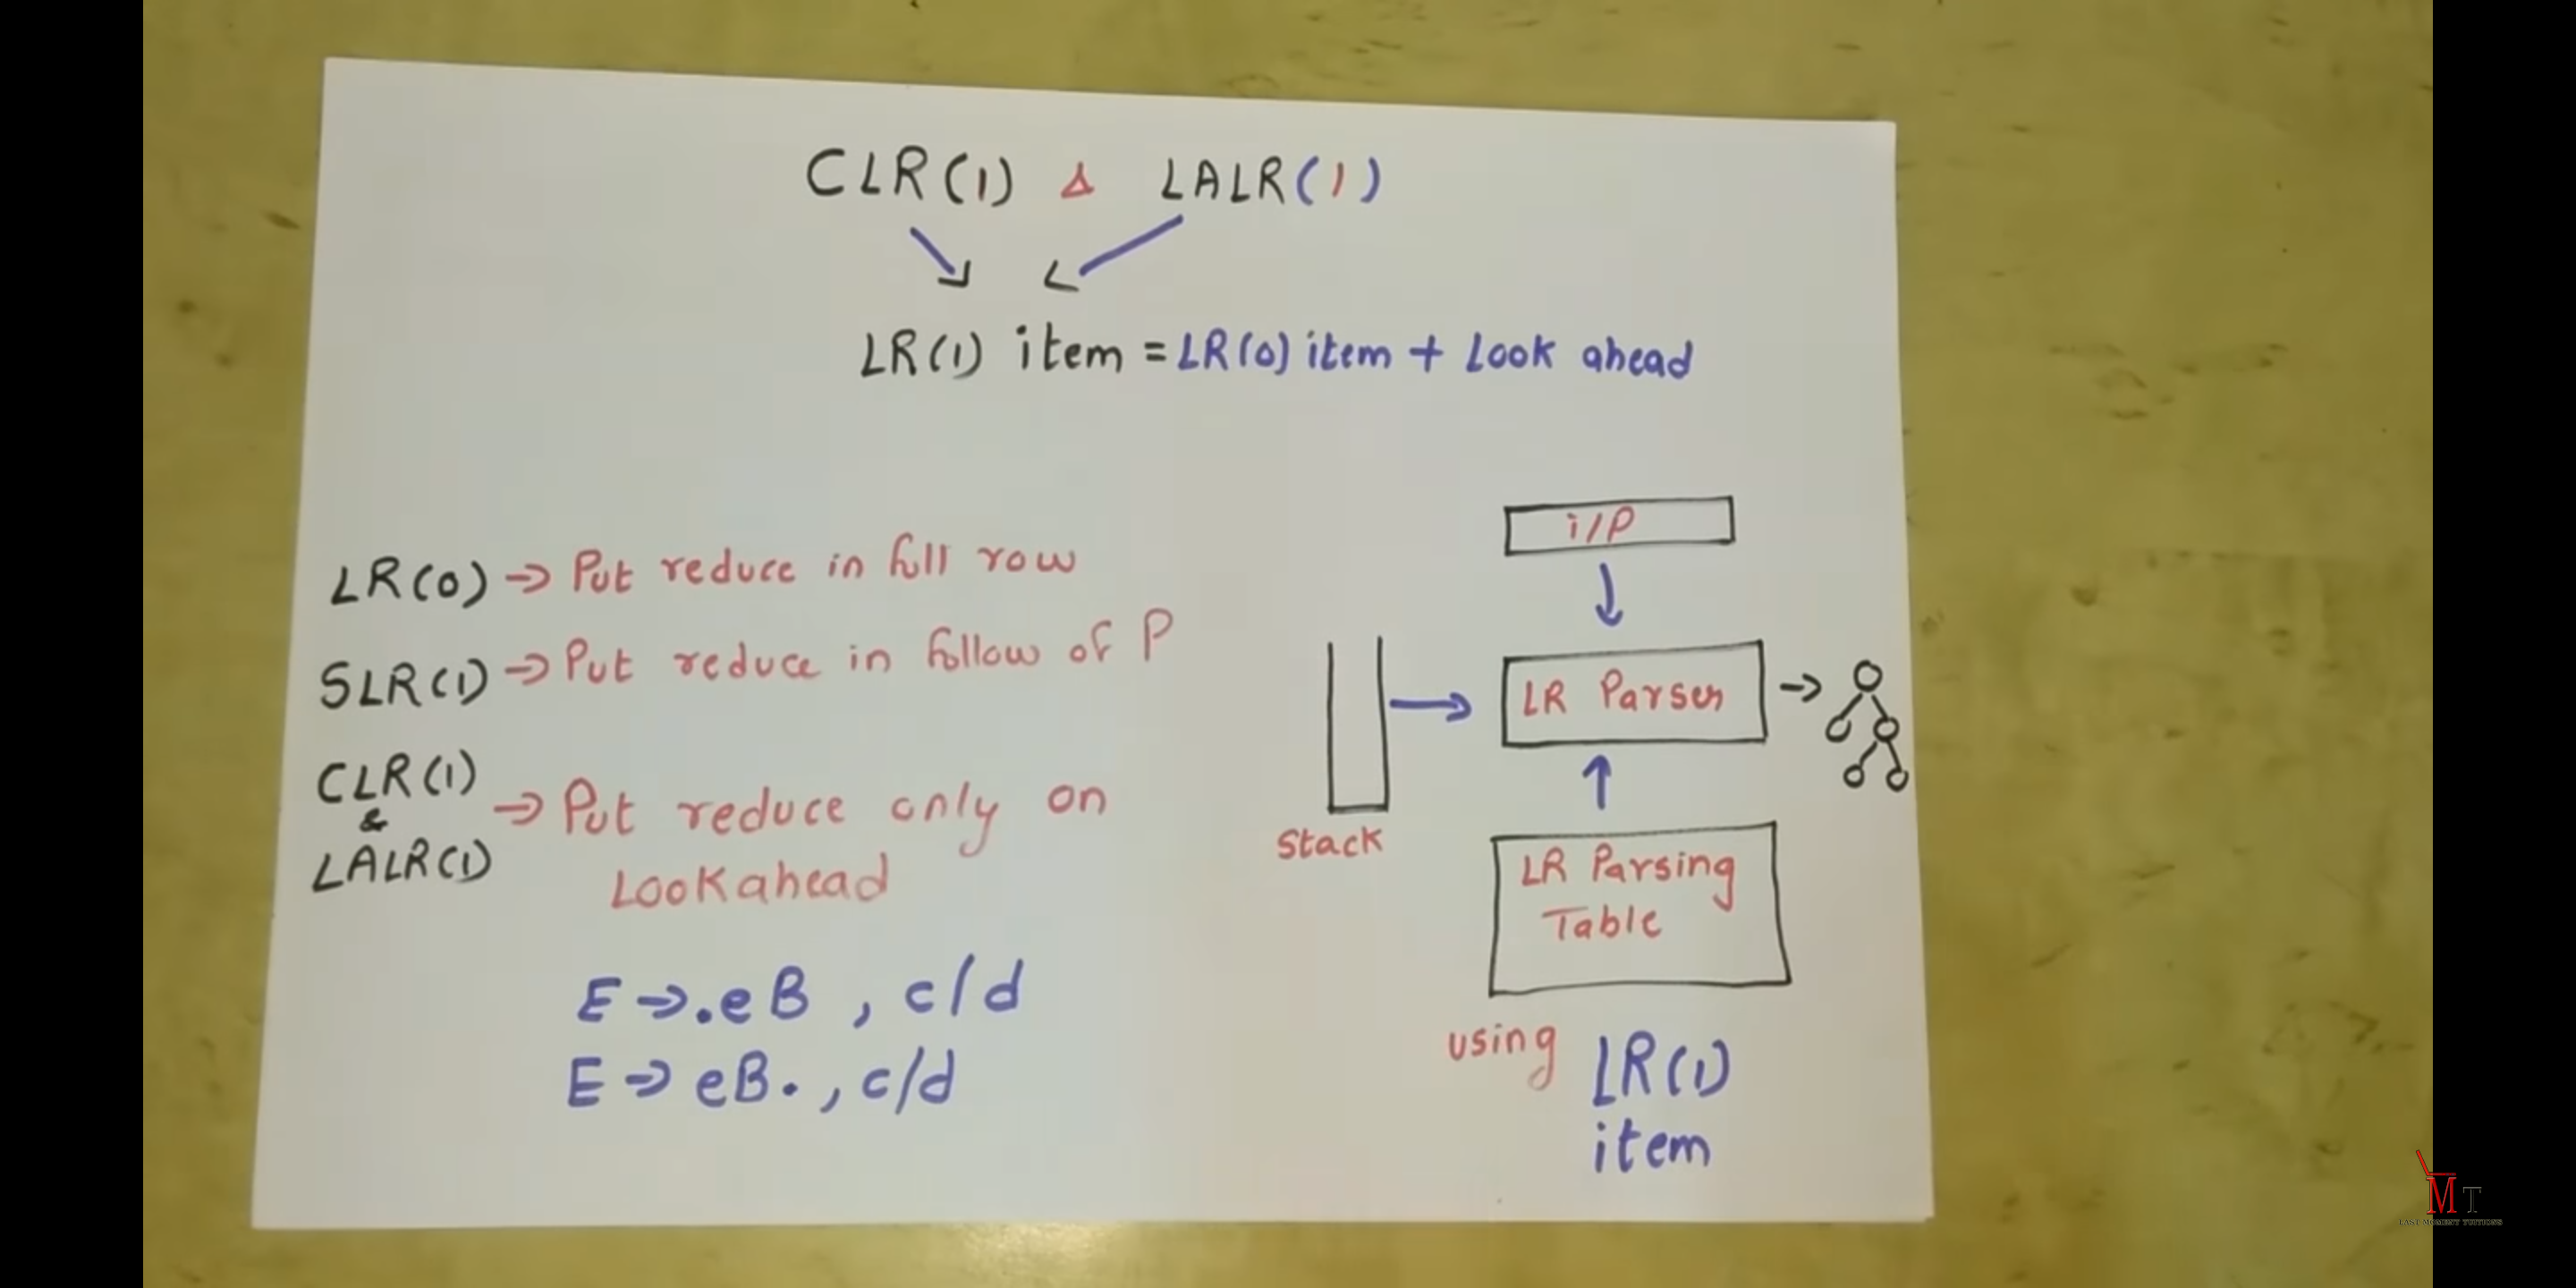 CLR(1) & LALR(1)
LR(1) item = LR(0) item + Look ahead
LR(0) → Put reduce in full row
SLR(1) → Put reduce in follow of P
CLR(1)
&
LALR(1)
→ Put reduce only on
Lookahead
E → .eB , c/d
E → eB. , c/d
i/P
LR Parser
Stack
LR Parsing
Table
using LR(1)
item
MT
LAST MOMENT TUITIONS